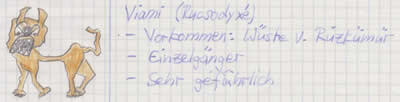 Viami (Rhasodyxé)
- Vorkommen: Wüste v. Rûzkûmûr
- Einzelgänger
- Sehr gefährlich